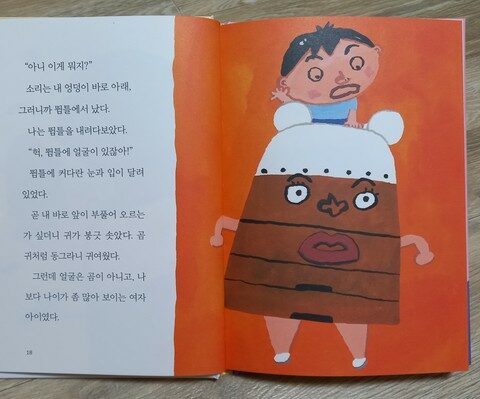 “아니 이게 뭐지?”
소리는 내 엉덩이 바로 아래,
그러니까 뜀틀에서 났다.
나는 뜀틀을 내려다보았다.
“헉, 뜀틀에 얼굴이 있잖아!”
뜀틀에 커다란 눈과 입이 달려
있었다.
곧 내 바로 앞이 부풀어 오르는
가 싶더니 귀가 봉긋 솟았다. 곰
귀처럼 동그라니 귀여웠다.
그런데 얼굴은 곰이 아니고, 나
보다 나이가 좀 많아 보이는 여자
아이였다.
18